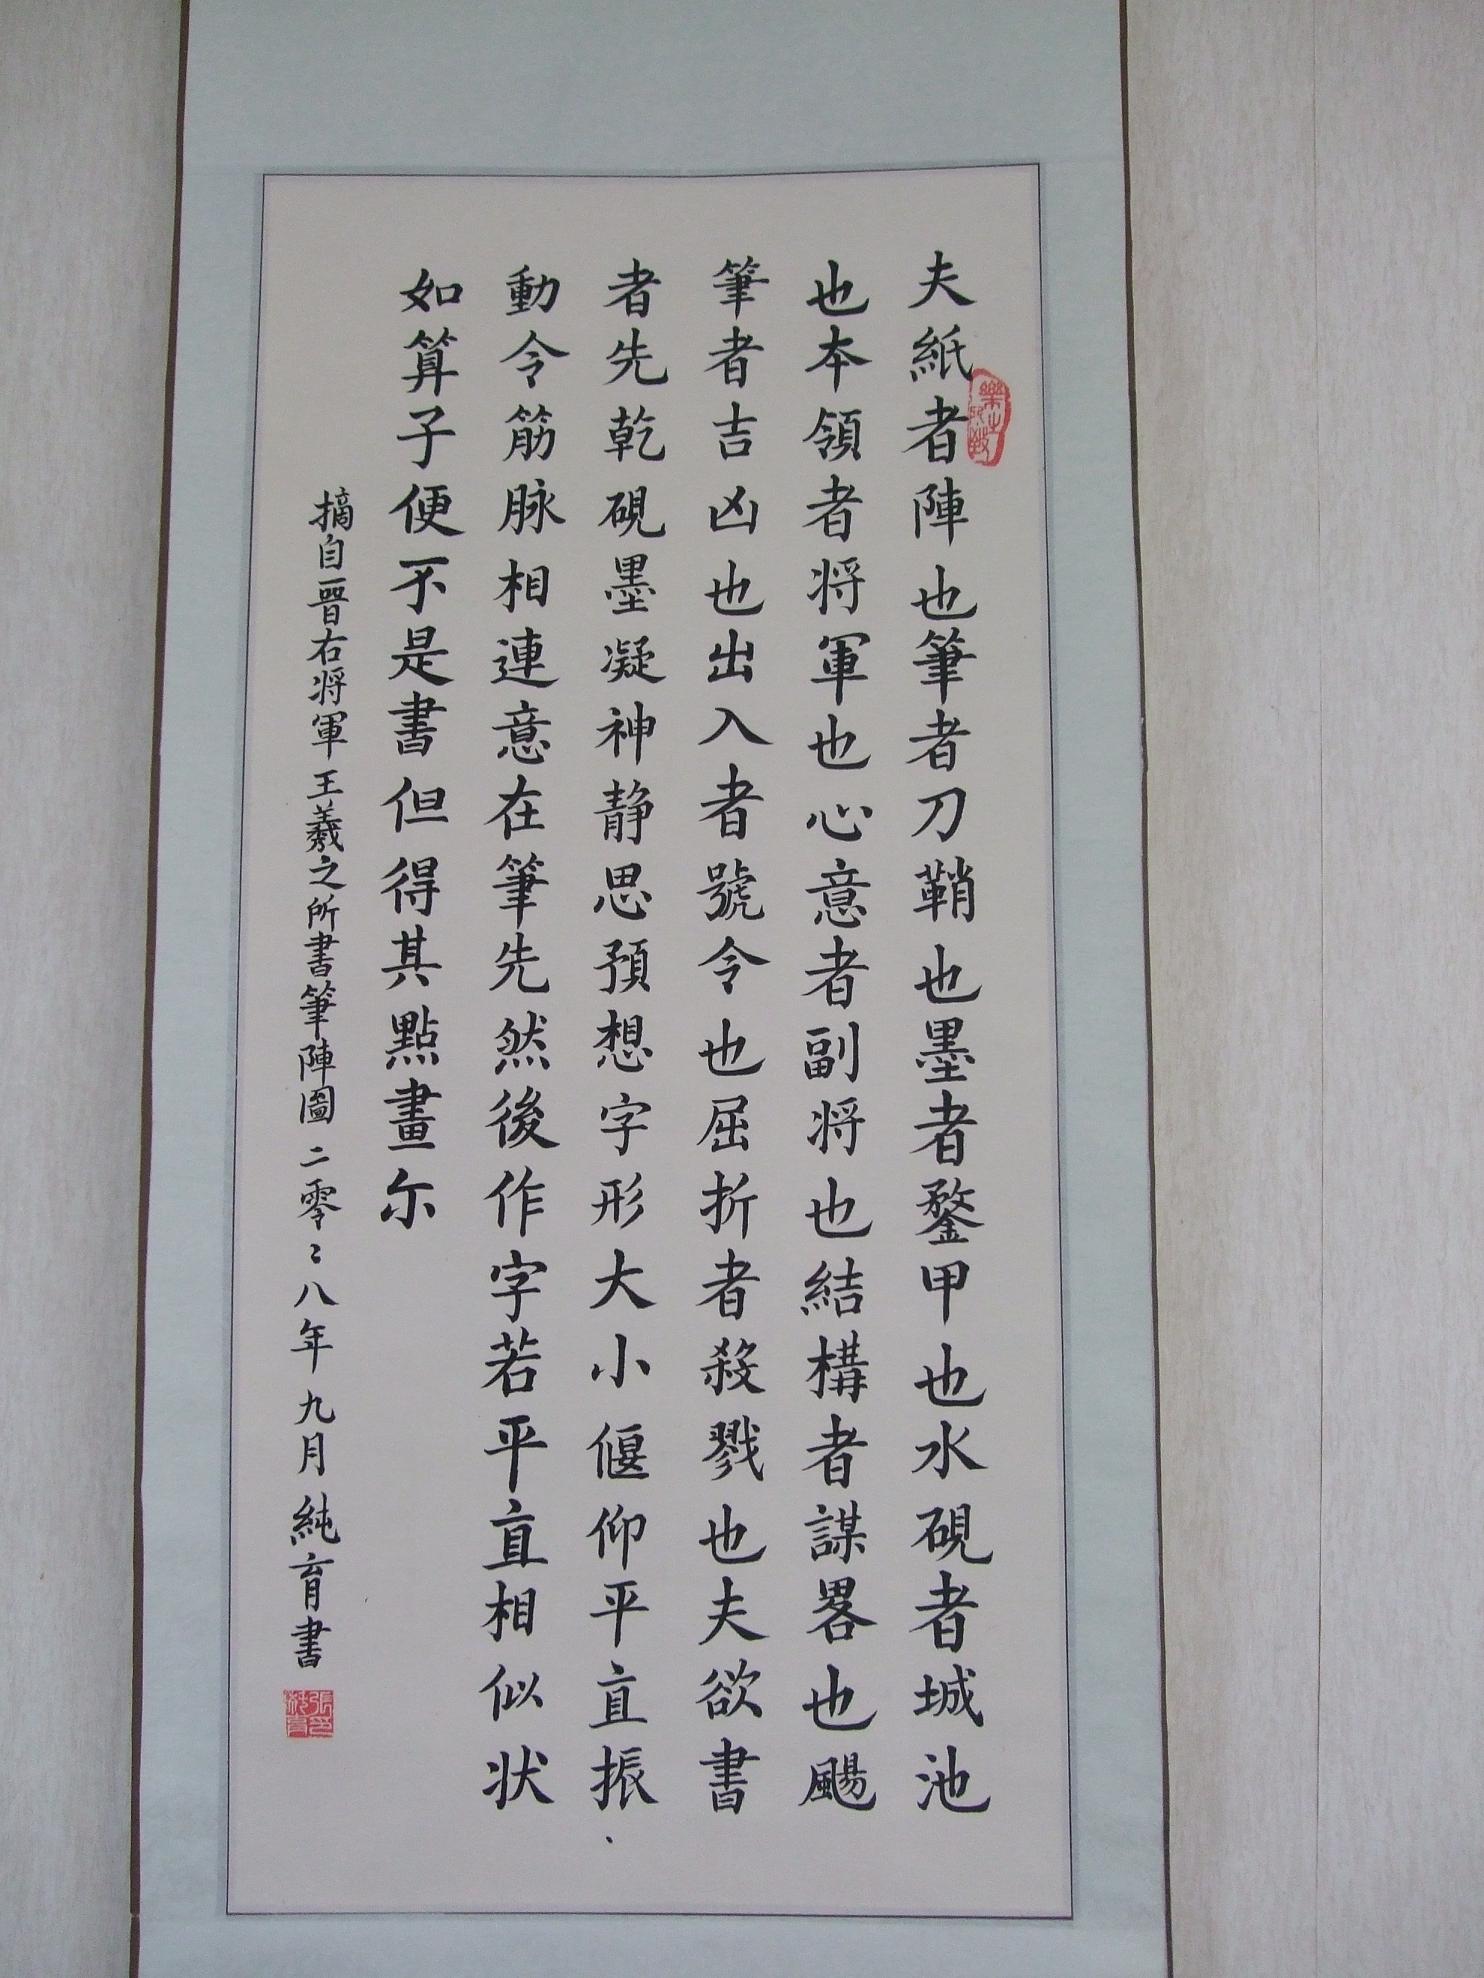 夫紙者陣也筆者刀鞘也墨者鍪甲也水硯者城池
也本領者将軍也心意者副将也結構者謀畧也颺
筆者吉凶也出入者號令也屈折者殺戮也夫欲書
者先乾硯墨凝神静思預想字形大小偃仰平直振
動令筋脉相連意在筆先然後作字若平直相似状
如算子便不是書但得其點畫尔
摘自晉右将軍王羲之所書筆陣圖二零〻八年九月純育書